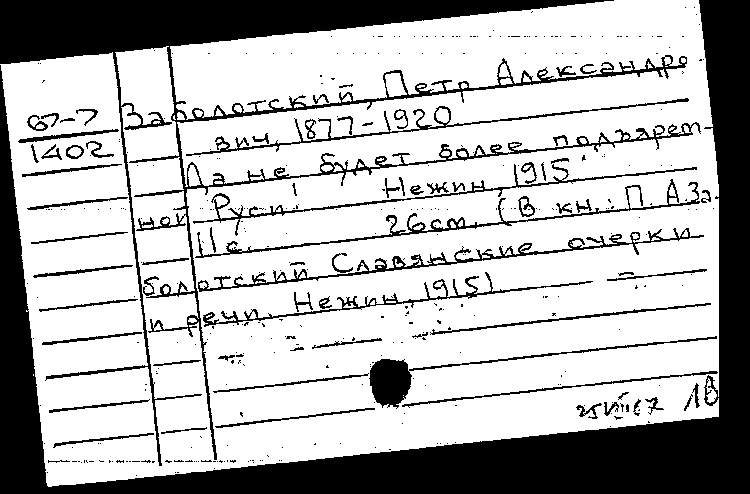 67-7
1402
Заболотский, Петр Александро
вич, 1877-1920
Да не будет более подъярем-
ной Руси! Нежин, 1915.
11 с. 26 см. (В кн.: П. А. За-
болотский. Славянские очерки
и речи. Нежин, 1915)
25 VIII 67 1В